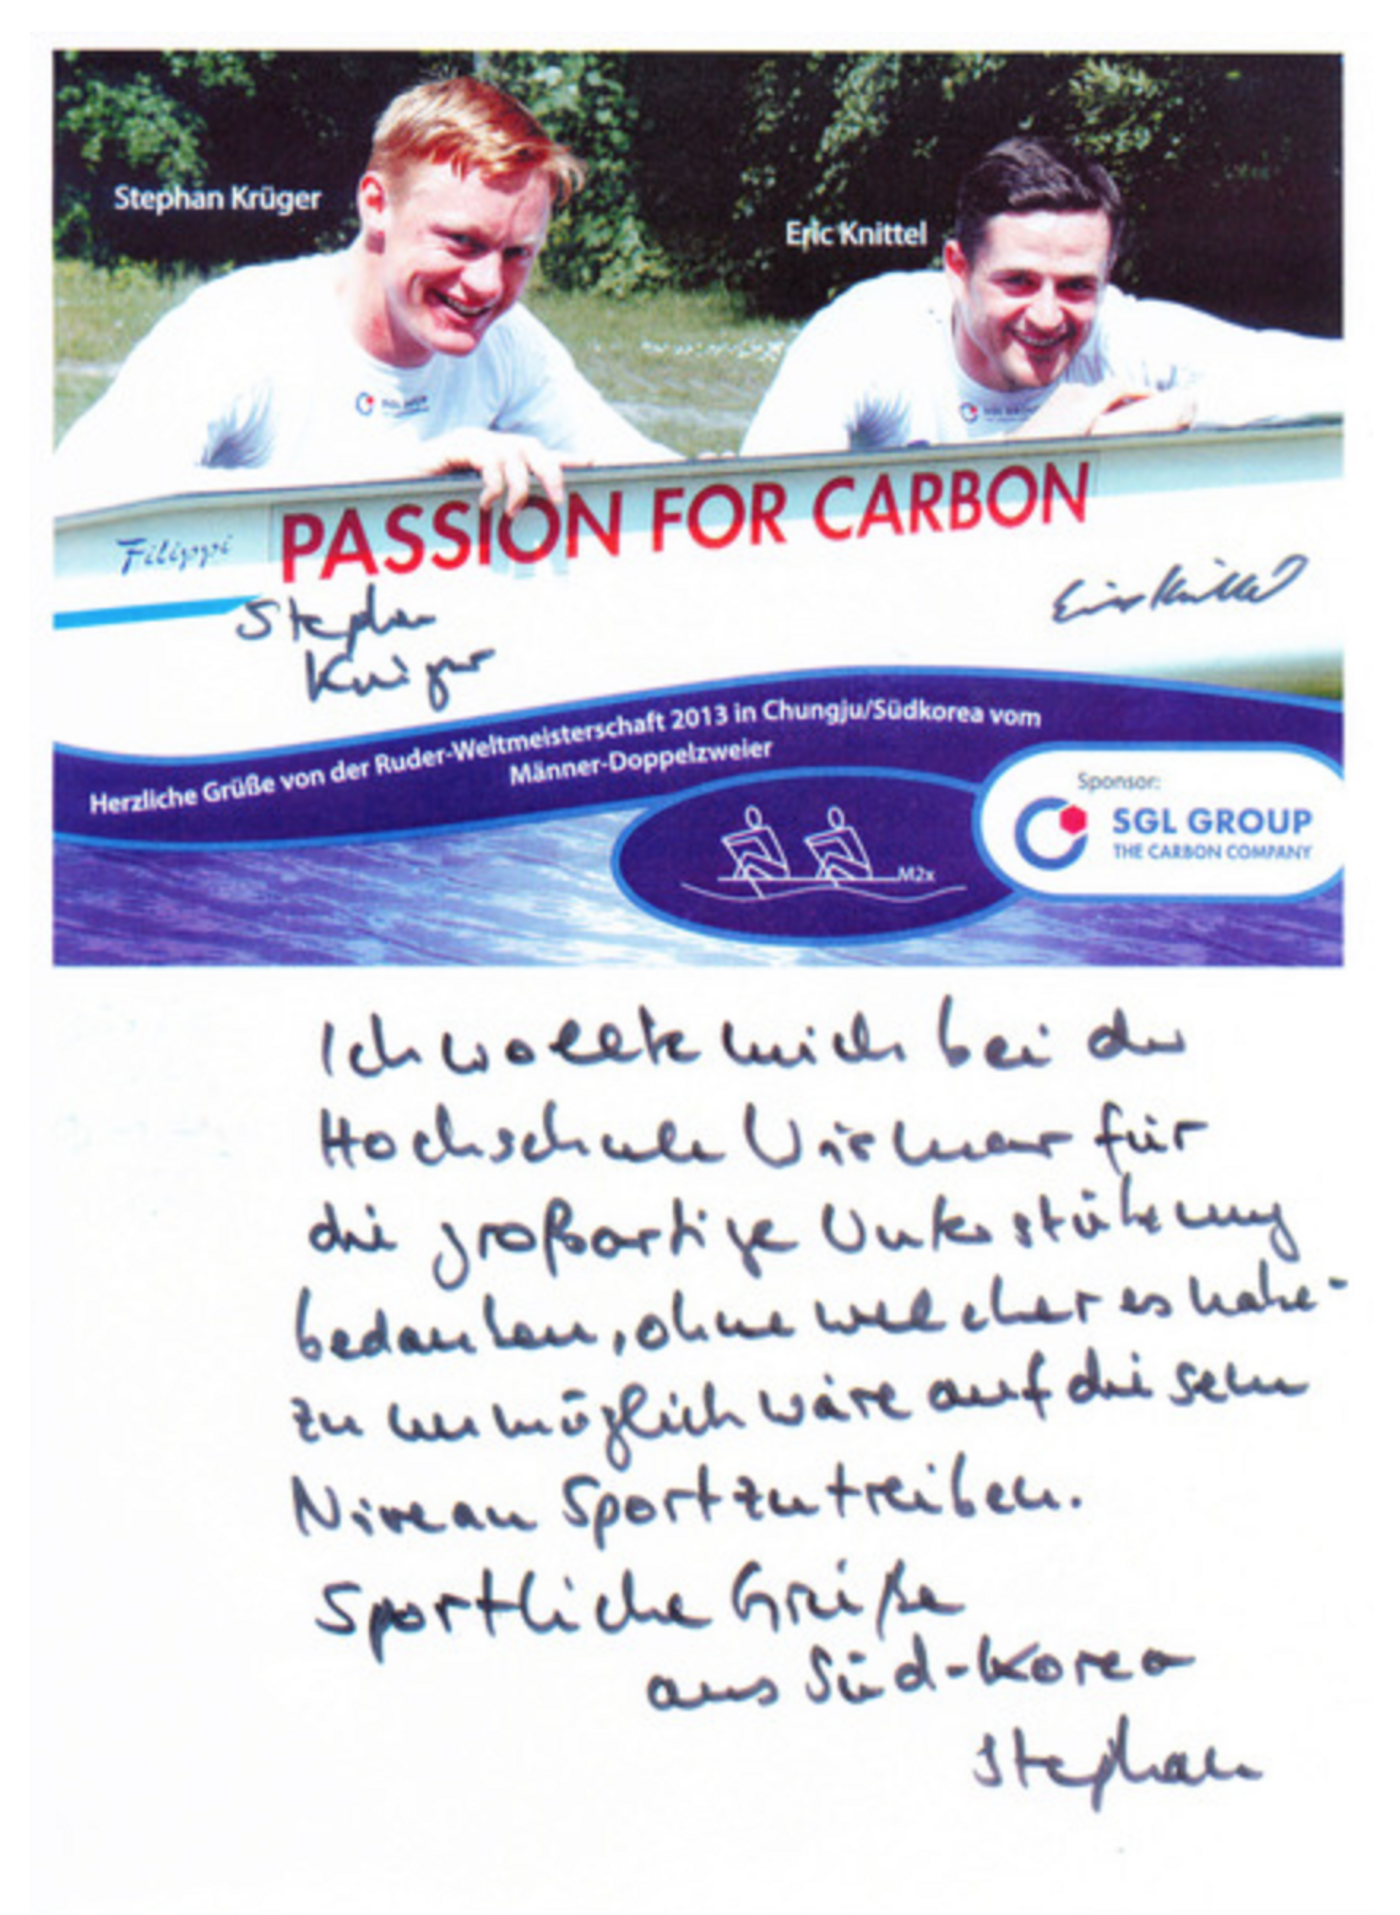 Stephan Krüger
Eric Knittel
SGL GROUP
SGL GROUP
PASSION FOR CARBON
Filippi
Eric Knittel
Stephan
Krüger
Herzliche Grüße von der Ruder-Weltmeisterschaft 2013 in Chungju/Südkorea vom
Männer-Doppelzweier
Sponsor:
SGL GROUP
THE CARBON COMPANY
M2x
Ich wollte mich bei der
Hochschule Wismar für
die großartige Unterstützung
bedanken, ohne welcher es nahe-
zu unmöglich wäre auf diesem
Niveau Sport zu treiben.
Sportliche Grüße
aus Süd-Korea
Stephan